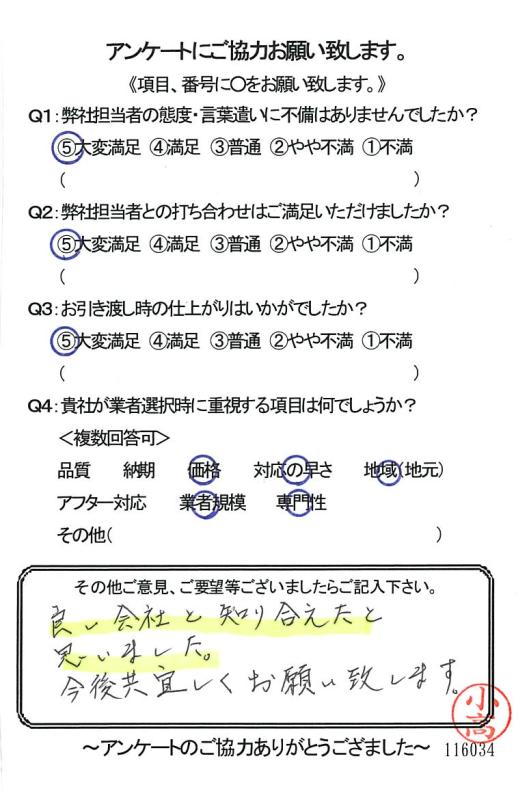 アンケートにご協力お願い致します。
《項目、番号に〇をお願い致します。》
Q1：弊社担当者の態度・言葉遣いに不備はありませんでしたか？
⑤大変満足 ④満足 ③普通 ②やや不満 ①不満
(　　　)
Q2：弊社担当者との打ち合わせはご満足いただけましたか？
⑤大変満足 ④満足 ③普通 ②やや不満 ①不満
(　　　)
Q3：お引き渡し時の仕上がりはいかがでしたか？
⑤大変満足 ④満足 ③普通 ②やや不満 ①不満
(　　　)
Q4：貴社が業者選択時に重視する項目は何でしょうか？
＜複数回答可＞
品質 納期 価格 対応の早さ 地域(地元)
アフター対応 業者規模 専門性
その他(　　　)
その他ご意見、ご要望等ございましたらご記入下さい。
良い会社と知り合えたと
思いました。
今後共宜しくお願い致します。
小高
～アンケートのご協力ありがとうござました～ 116034